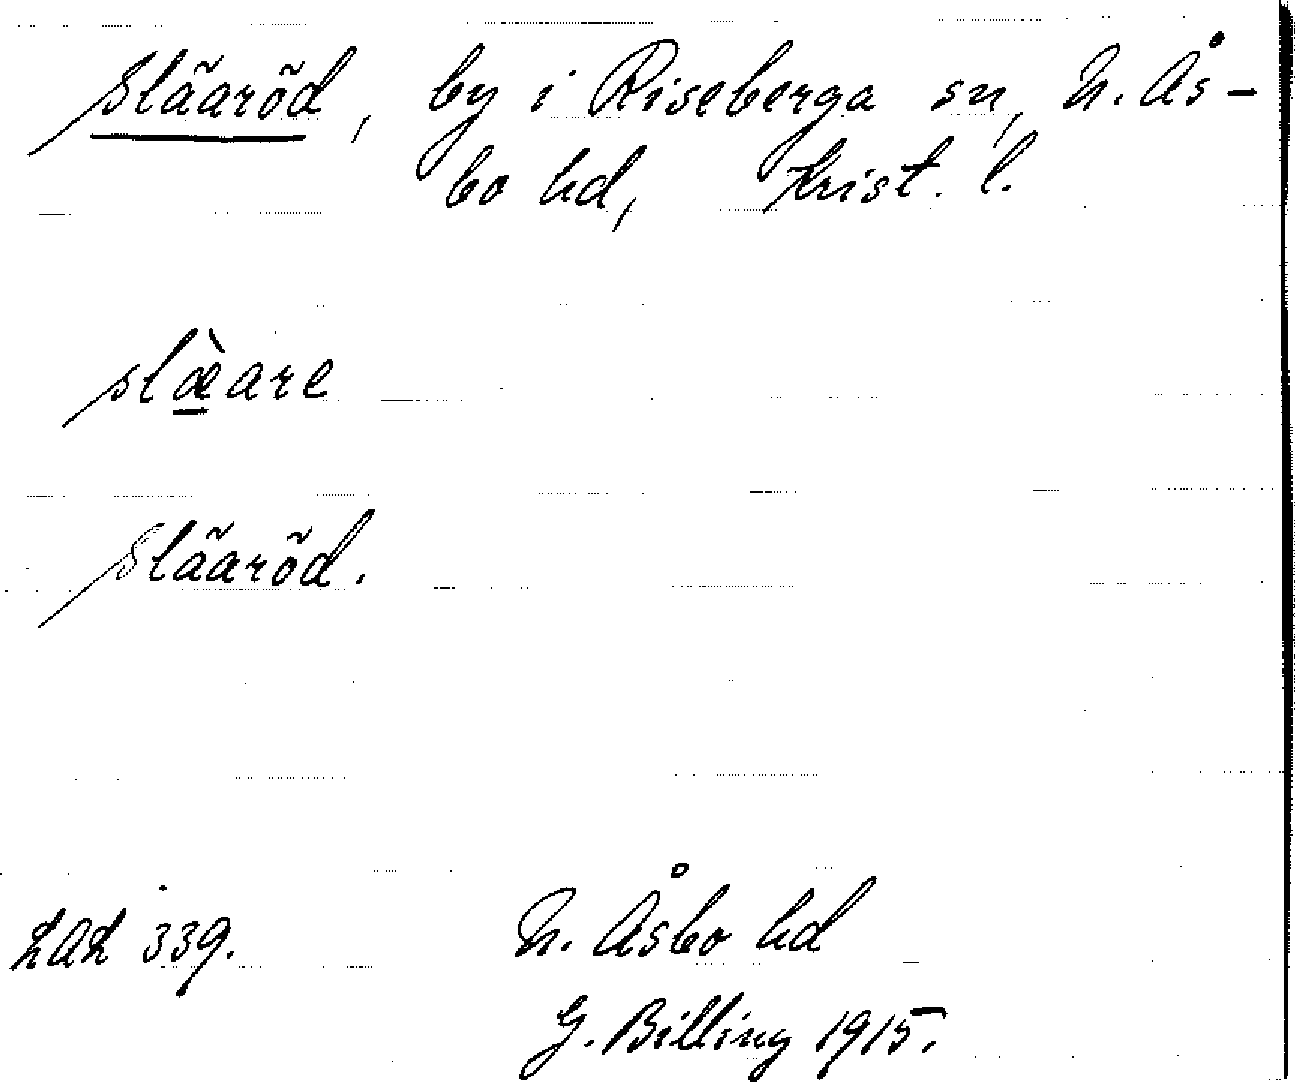 Slããrõd, by i Riseberga sn, N. Ås-
bo hd, Krist. l.
slæ̀are
Slãarõd.
LAL 339.
N. Åsbo hd
G. Billing 1915.